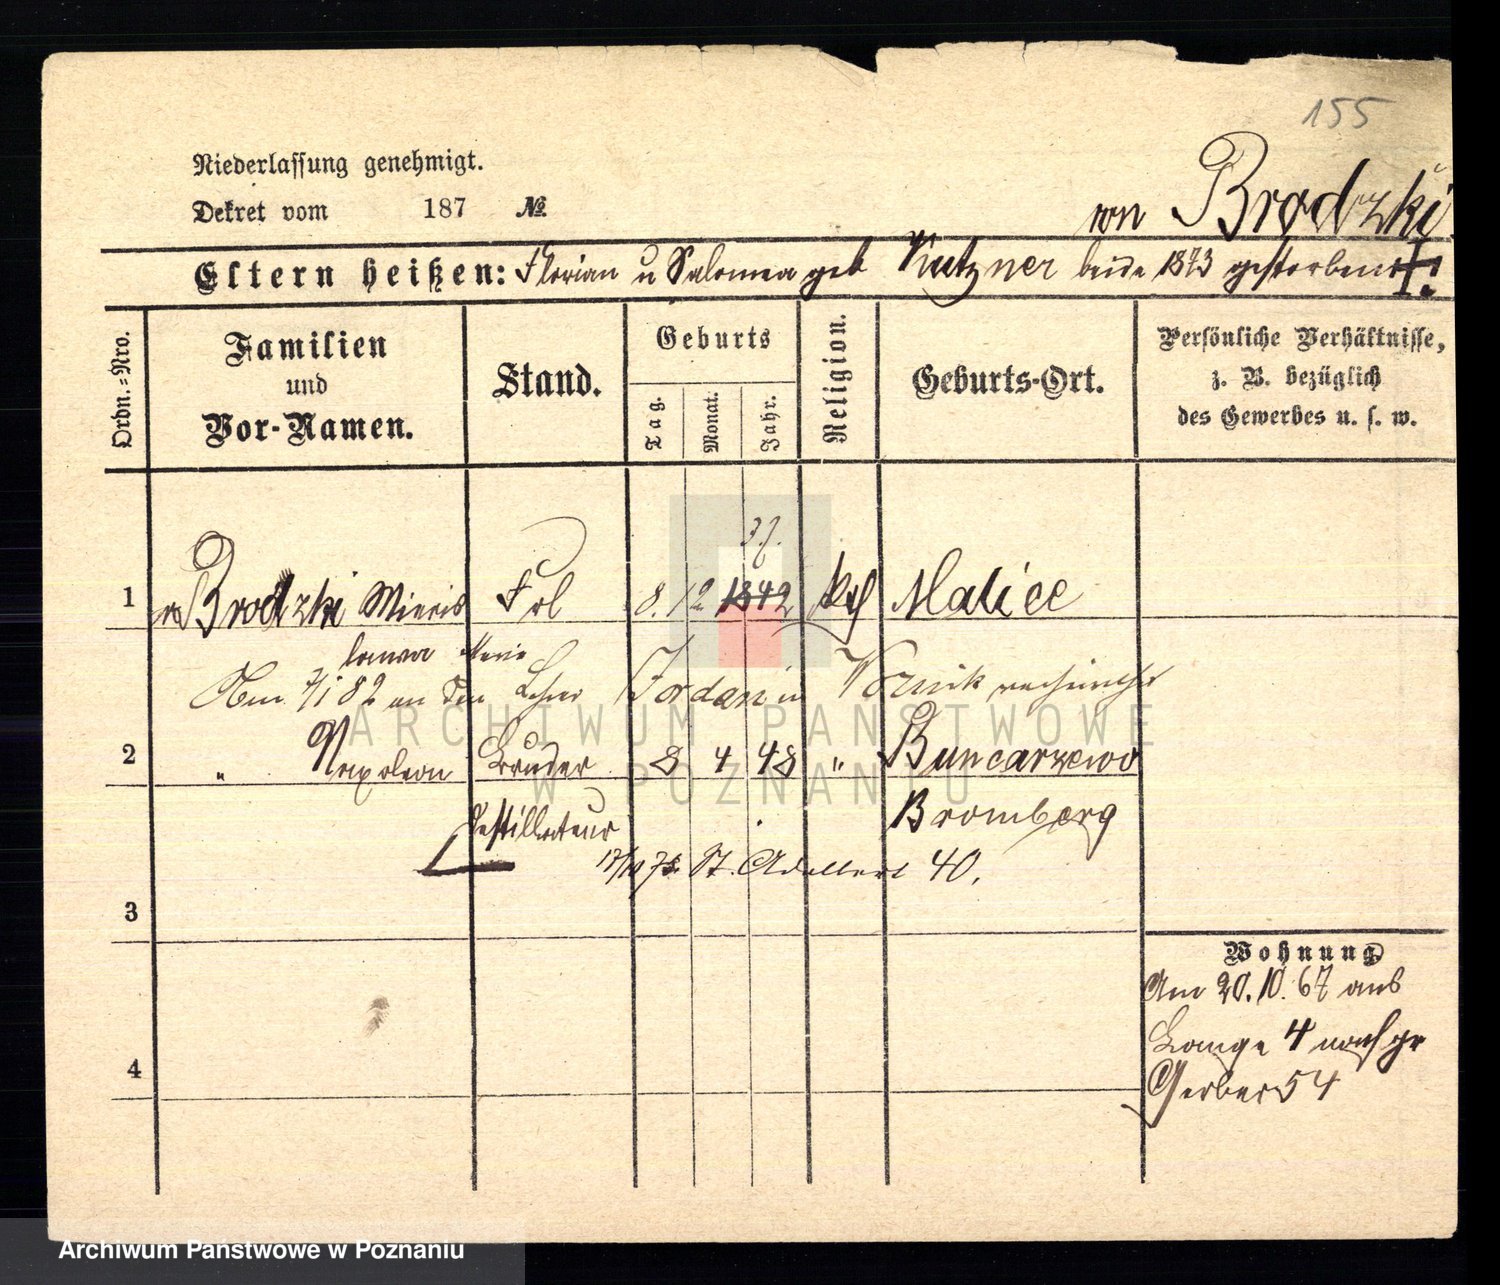 155
Niederlassung genehmigt.
Dekret vom 187 №
von Brodzki
Eltern heißen: Florian u Salomea geb Kutzner beide 1873 gestorben
Ordn.-Nro.
Familien und Vor-Namen.
Stand.
Geburts
Tag.
Monat.
Jahr.
Religion.
Geburts-Ort.
Persönliche Verhältnisse,
z. B. bezüglich
des Gewerbes u. s. w.
37.
1 v Brodzki Frl 8. 12 1842 kath Malice
Marie
Am 7/1 82 an den Lehrer Jordan in
2 " Napoleon Bruder 8 4 48 " Buncarzewo
Destillateur Bromberg
St. Adalbert 40.
3
Wohnung
Am 20. 10. 67 aus
Lange 4 nach gr
Gerber 54
4
ARCHIWUM PAŃSTWOWE
W POZNANIU
Archiwum Państwowe w Poznaniu